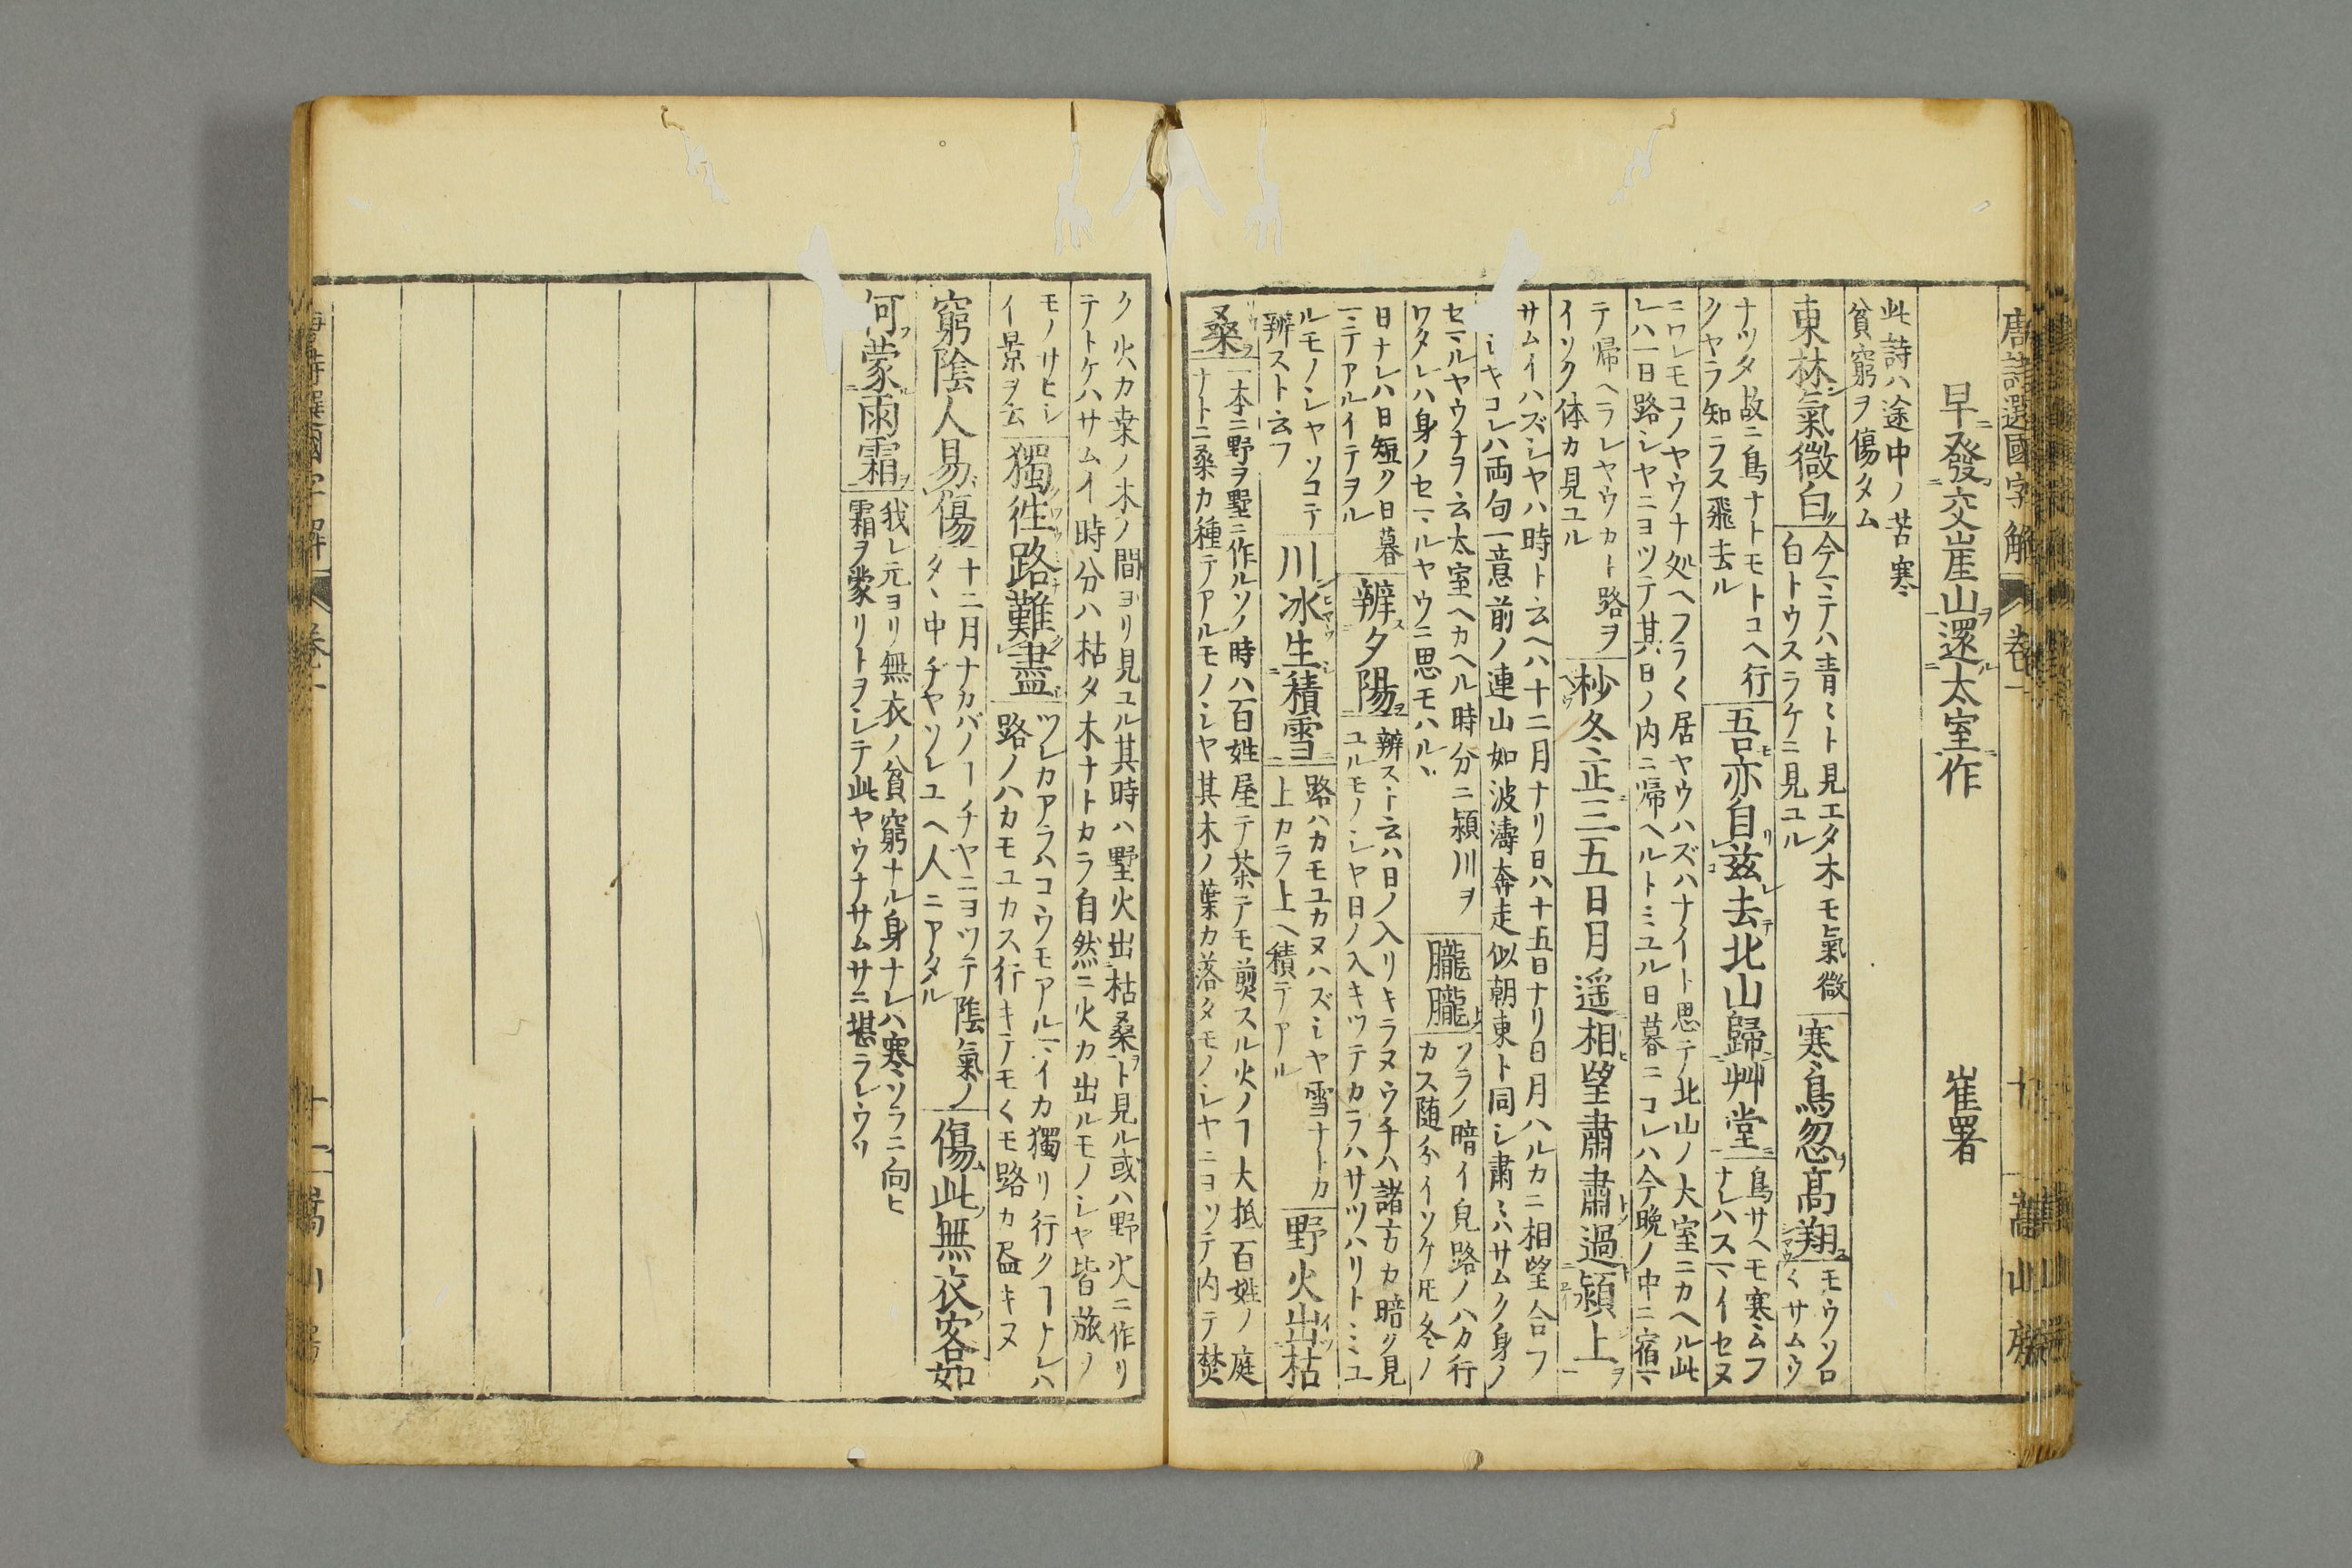 唐詩選國字解 卷一 十一 嵩山房
早發交崖山還太室作 崔署
此詩ハ途中ノ苦寒
貧窮ヲ傷タム
東林氣微白
今マテハ青々ト見エタ木モ氣微
白トウスラケニ見ユル
寒鳥忽高翔
モウソロ
〱サムウ
ナツタ故ニ鳥ナトモトコヘ行
クヤラ知ラス飛去ル
吾亦自茲去北山歸艸堂
鳥サヘモ寒ムフ
ナレハスマイセヌ
ニワレモコノヤウナ処ヘフラ〱居ヤウハズハナイト思テ北山ノ大室ニカヘル此
レハ一日路シヤニヨツテ其日ノ内ニ帰ヘルトミユル日暮ニコレハ今晩ノ中ニ宿マ
テ帰ヘラレヤウカト路ヲ
イソク体カ見ユル
杪冬正三五日月遥相望肅肅過潁上
サムイハズシヤハ時ト云ヘハ十二月ナリ日ハ十五日ナリ日月ハルカニ相望合フ
シヤコレハ両句一意前ノ連山如波濤奔走似朝東ト同シ肅々ハサムク身ノ
セマルヤウナヲ云太室ヘカヘル時分ニ潁川ヲ
ワタレハ身ノセマルヤウニ思モハルヽ
朧朧
ソラノ暗イ皃路ノハカ行
カス随分イソケ𪜈冬ノ
日ナレハ日短ク日暮
マテアルイテヲル
辨夕陽
辨スト云ハ日ノ入リキラヌウチハ諸方カ暗ク見
ユルモノシヤ日ノ入キツテカラハサツハリトミユ
ルモノシヤソコテ
辨スト云フ
川冰生積雪
路ハカモユカヌハズシヤ雪ナトカ
上カラ上ヘ積テアル
野火出枯
桑
一本ニ野ヲ墅ニ作ルソノ時ハ百姓屋テ茶テモ煎スル火ノヿ大抵百姓ノ庭
ナトニ桑カ種テアルモノシヤ其木ノ葉カ落タモノシヤニヨツテ内テ焚
ク火カ桒ノ木ノ間ヨリ見ユル其時ハ墅火出枯桑ヲト見ル或ハ野火ニ作リ
テトケハサムイ時分ハ枯タ木ナトカラ自然ニ火カ出ルモノシヤ皆旅ノ
モノサヒシ
イ景ヲ云
獨徃路難盡
ツレカアラハコウモアルマイカ獨リ行クヿナレハ
路ノハカモユカス行キテモ〱モ路カ盡キヌ
窮陰人易傷
十二月ナカバノヿチヤニヨツテ陰氣ノ
タヽ中ヂヤソレユヘ人ニアタル
傷此無衣客如
何蒙雨霜
我レ元ヨリ無衣ノ貧窮ナル身ナレハ寒ソラニ向ヒ
霜ヲ蒙リトヲシテ此ヤウナサムサニ堪ラレウソ
唐詩選國字解 卷一 十一 嵩山房